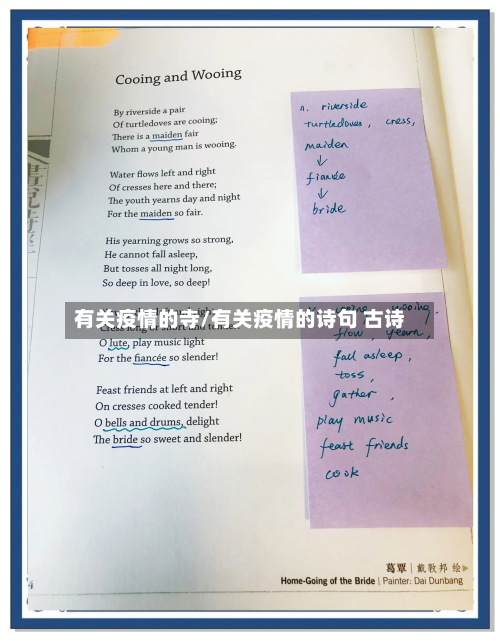 Cooing and Wooing
By riverside a pair
Of turtledoves are cooing;
There is a maiden fair
Whom a young man is wooing.
Water flows left and right
Of cresses here and there;
The youth yearns day and night
For the maiden so fair.
His yearning grows so strong,
He cannot fall asleep,
But tosses all night long,
So deep in love, so deep!
有关疫情的寺/有关疫情的诗句 古诗
O lute, play music light
For the fiancée so slender!
Feast friends at left and right
On cresses cooked tender!
O bells and drums, delight
The bride so sweet and slender!
n. riverside
turtledoves, cress,
maiden
↓
fiancée
↓
bride
flow, yearn,
fall asleep,
toss,
gather,
play music
feast friends
cook
葛覃 | 戴敦邦 绘
Home-Going of the Bride | Painter: Dai Dunbang